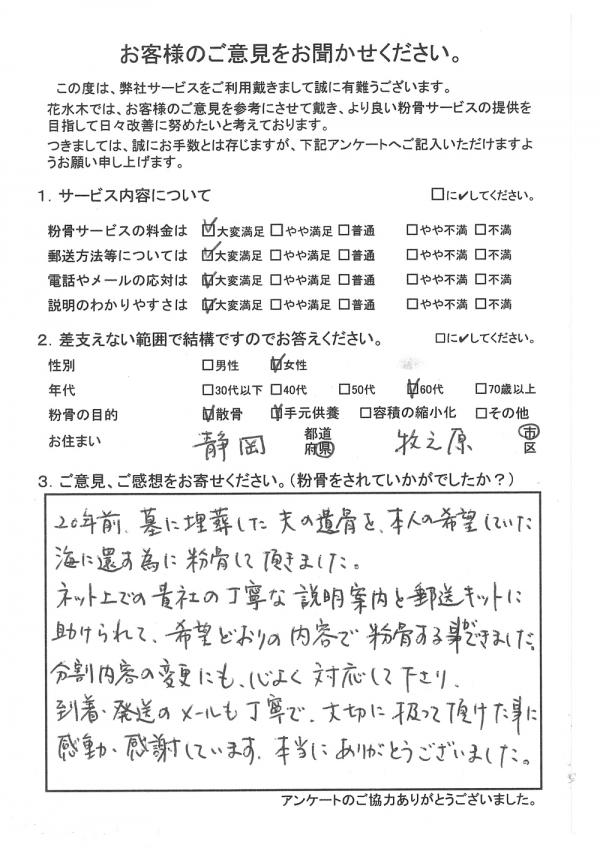 お客様のご意見をお聞かせください。
この度は、弊社サービスをご利用戴きまして誠に有難うございます。
花水木では、お客様のご意見を参考にさせて戴き、より良い粉骨サービスの提供を
目指して日々改善に努めたいと考えております。
つきましては、誠にお手数とは存じますが、下記アンケートへご記入いただけますよ
うお願い申し上げます。
1．サービス内容について □に✔してください。
粉骨サービスの料金は ☑大変満足 □やや満足 □普通 □やや不満 □不満
郵送方法等については ☑大変満足 □やや満足 □普通 □やや不満 □不満
電話やメールの応対は ☑大変満足 □やや満足 □普通 □やや不満 □不満
説明のわかりやすさは ☑大変満足 □やや満足 □普通 □やや不満 □不満
2．差支えない範囲で結構ですのでお答えください。 □に✔してください。
性別 □男性 ☑女性
年代 □30代以下 □40代 □50代 ☑60代 □70歳以上
粉骨の目的 ☑散骨 ☑手元供養 □容積の縮小化 □その他
お住まい 静岡 都道府県 牧之原 市区
3．ご意見、ご感想をお寄せください。（粉骨をされていかがでしたか？）
20年前、墓に埋葬した夫の遺骨を、本人の希望していた
海に還す為に粉骨して頂きました。
ネット上での貴社の丁寧な説明案内と郵送キットに
助けられて、希望どおりの内容で粉骨する事ができました。
分割内容の変更にも、心よく対応して下さり、
到着・発送のメールも丁寧で、大切に扱って頂けた事に
感動・感謝しています。本当にありがとうございました。
アンケートのご協力ありがとうございました。